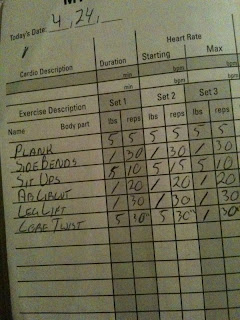 Today's Date: 4, 24,
Heart Rate
Cardio Description Duration Starting Max
min bpm bpm
min bpm bpm
Exercise Description Set 1 Set 2 Set 3
Name Body part lbs reps lbs reps lbs reps
PLANK 5 5 5 5 5 5
SIDE BENDS / 30 / 30 / 30
SIT UPS 5 10 5 15 5 10
AB CIRCUIT / 20 / 20 / 20
LEG LIFT / 30 / 30 / 30
CORE TWIST 5 30 5 30 / 30